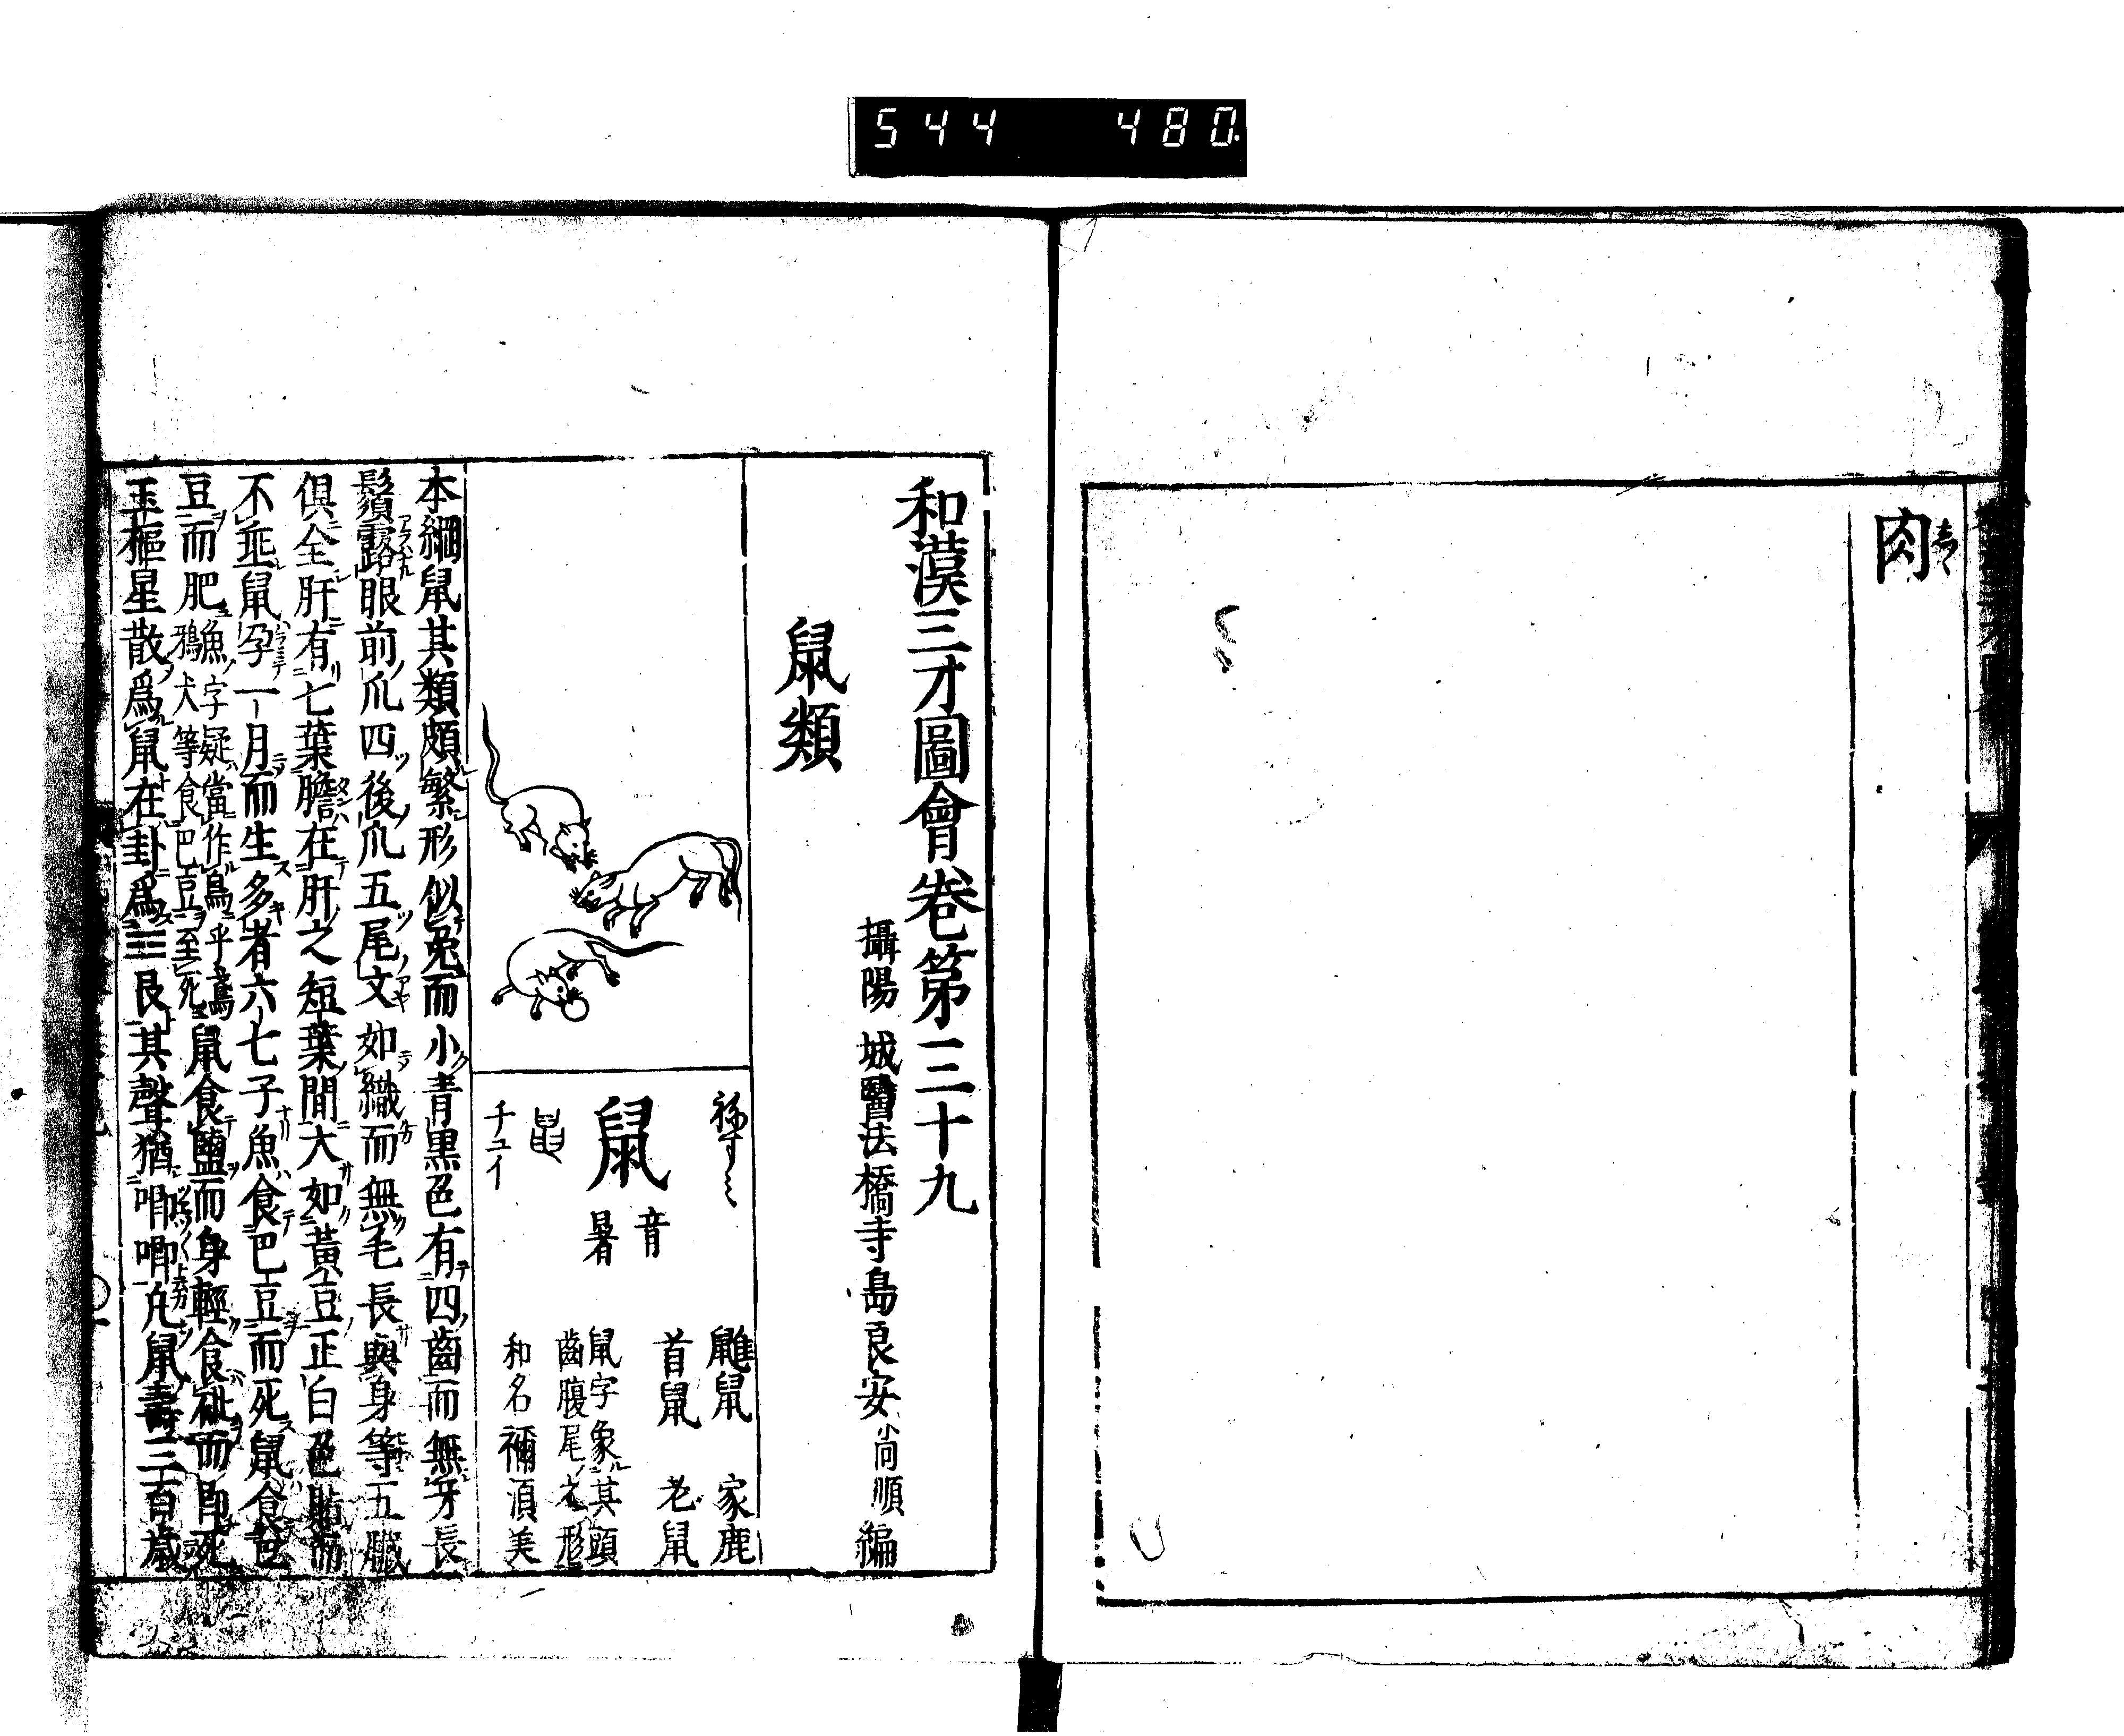 544 480
肉
和漢三才圖會卷第三十九
攝陽 城醫法橋寺島良安尚順編
鼠類
鼠
音暑
チユイ
鼠 家鹿
首鼠 老鼠
鼠字象其頭
齒腹尾之形
和名禰須美
本綱鼠其類頗繁形似兔而小青黒色有四齒而無牙長
鬚露眼前爪四後爪五尾文如織而無毛長與身等五臟
俱全肝有七葉膽在肝之短葉間大如黃豆正白色貼而
不垂鼠孕一月而生多者六七子魚食巴豆而死鼠食巴
豆而肥魚字疑當作鳥乎鳶鴉犬等食巴豆至死鼠食鹽而身輕食砒而即死
玉樞星散爲鼠在卦爲☶艮其聲猶喞喞凡鼠壽三百歲